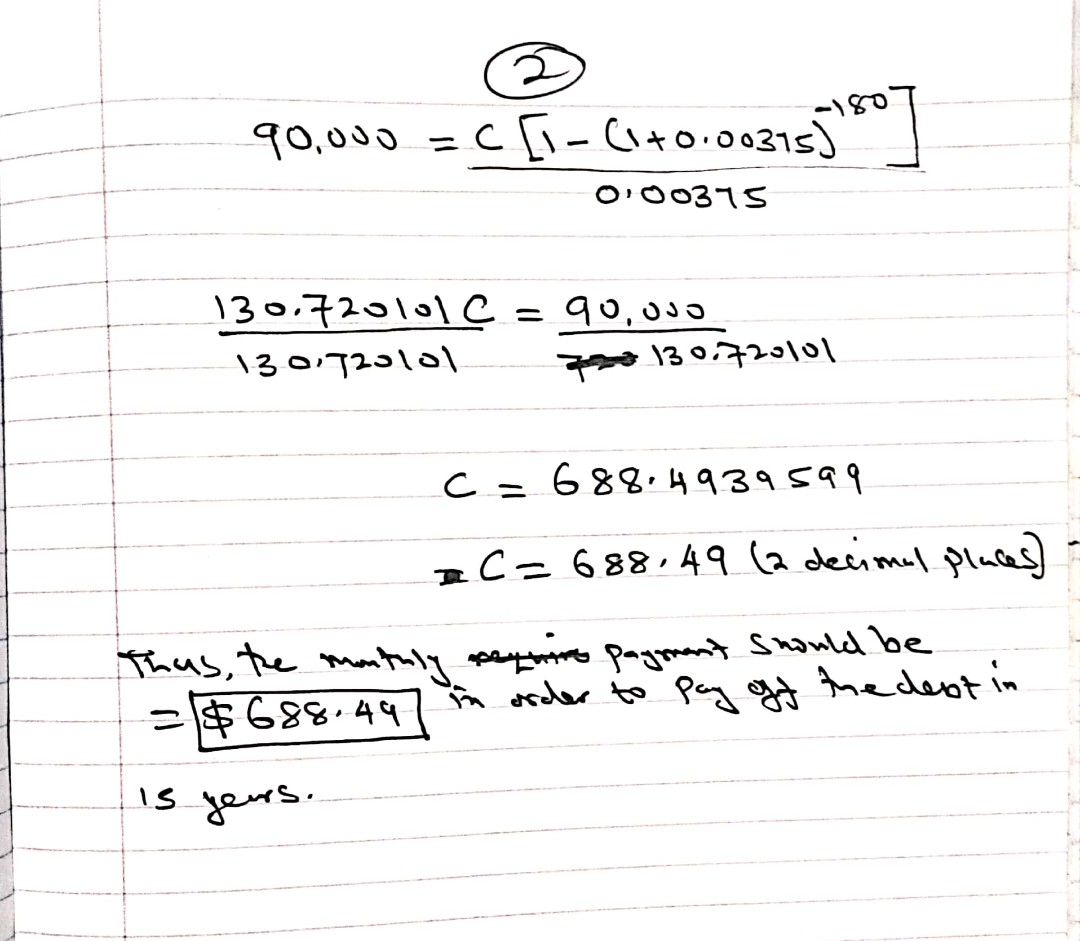 2
90,000 = C [1 - (1+0.00375)^-180]
0.00375
130.720101 C = 90,000
130.720101 130.720101
C = 688.4939599
= C = 688.49 (2 decimal places)
Thus, the monthly payment should be
= $688.49 in order to pay off the debt in
15 years.